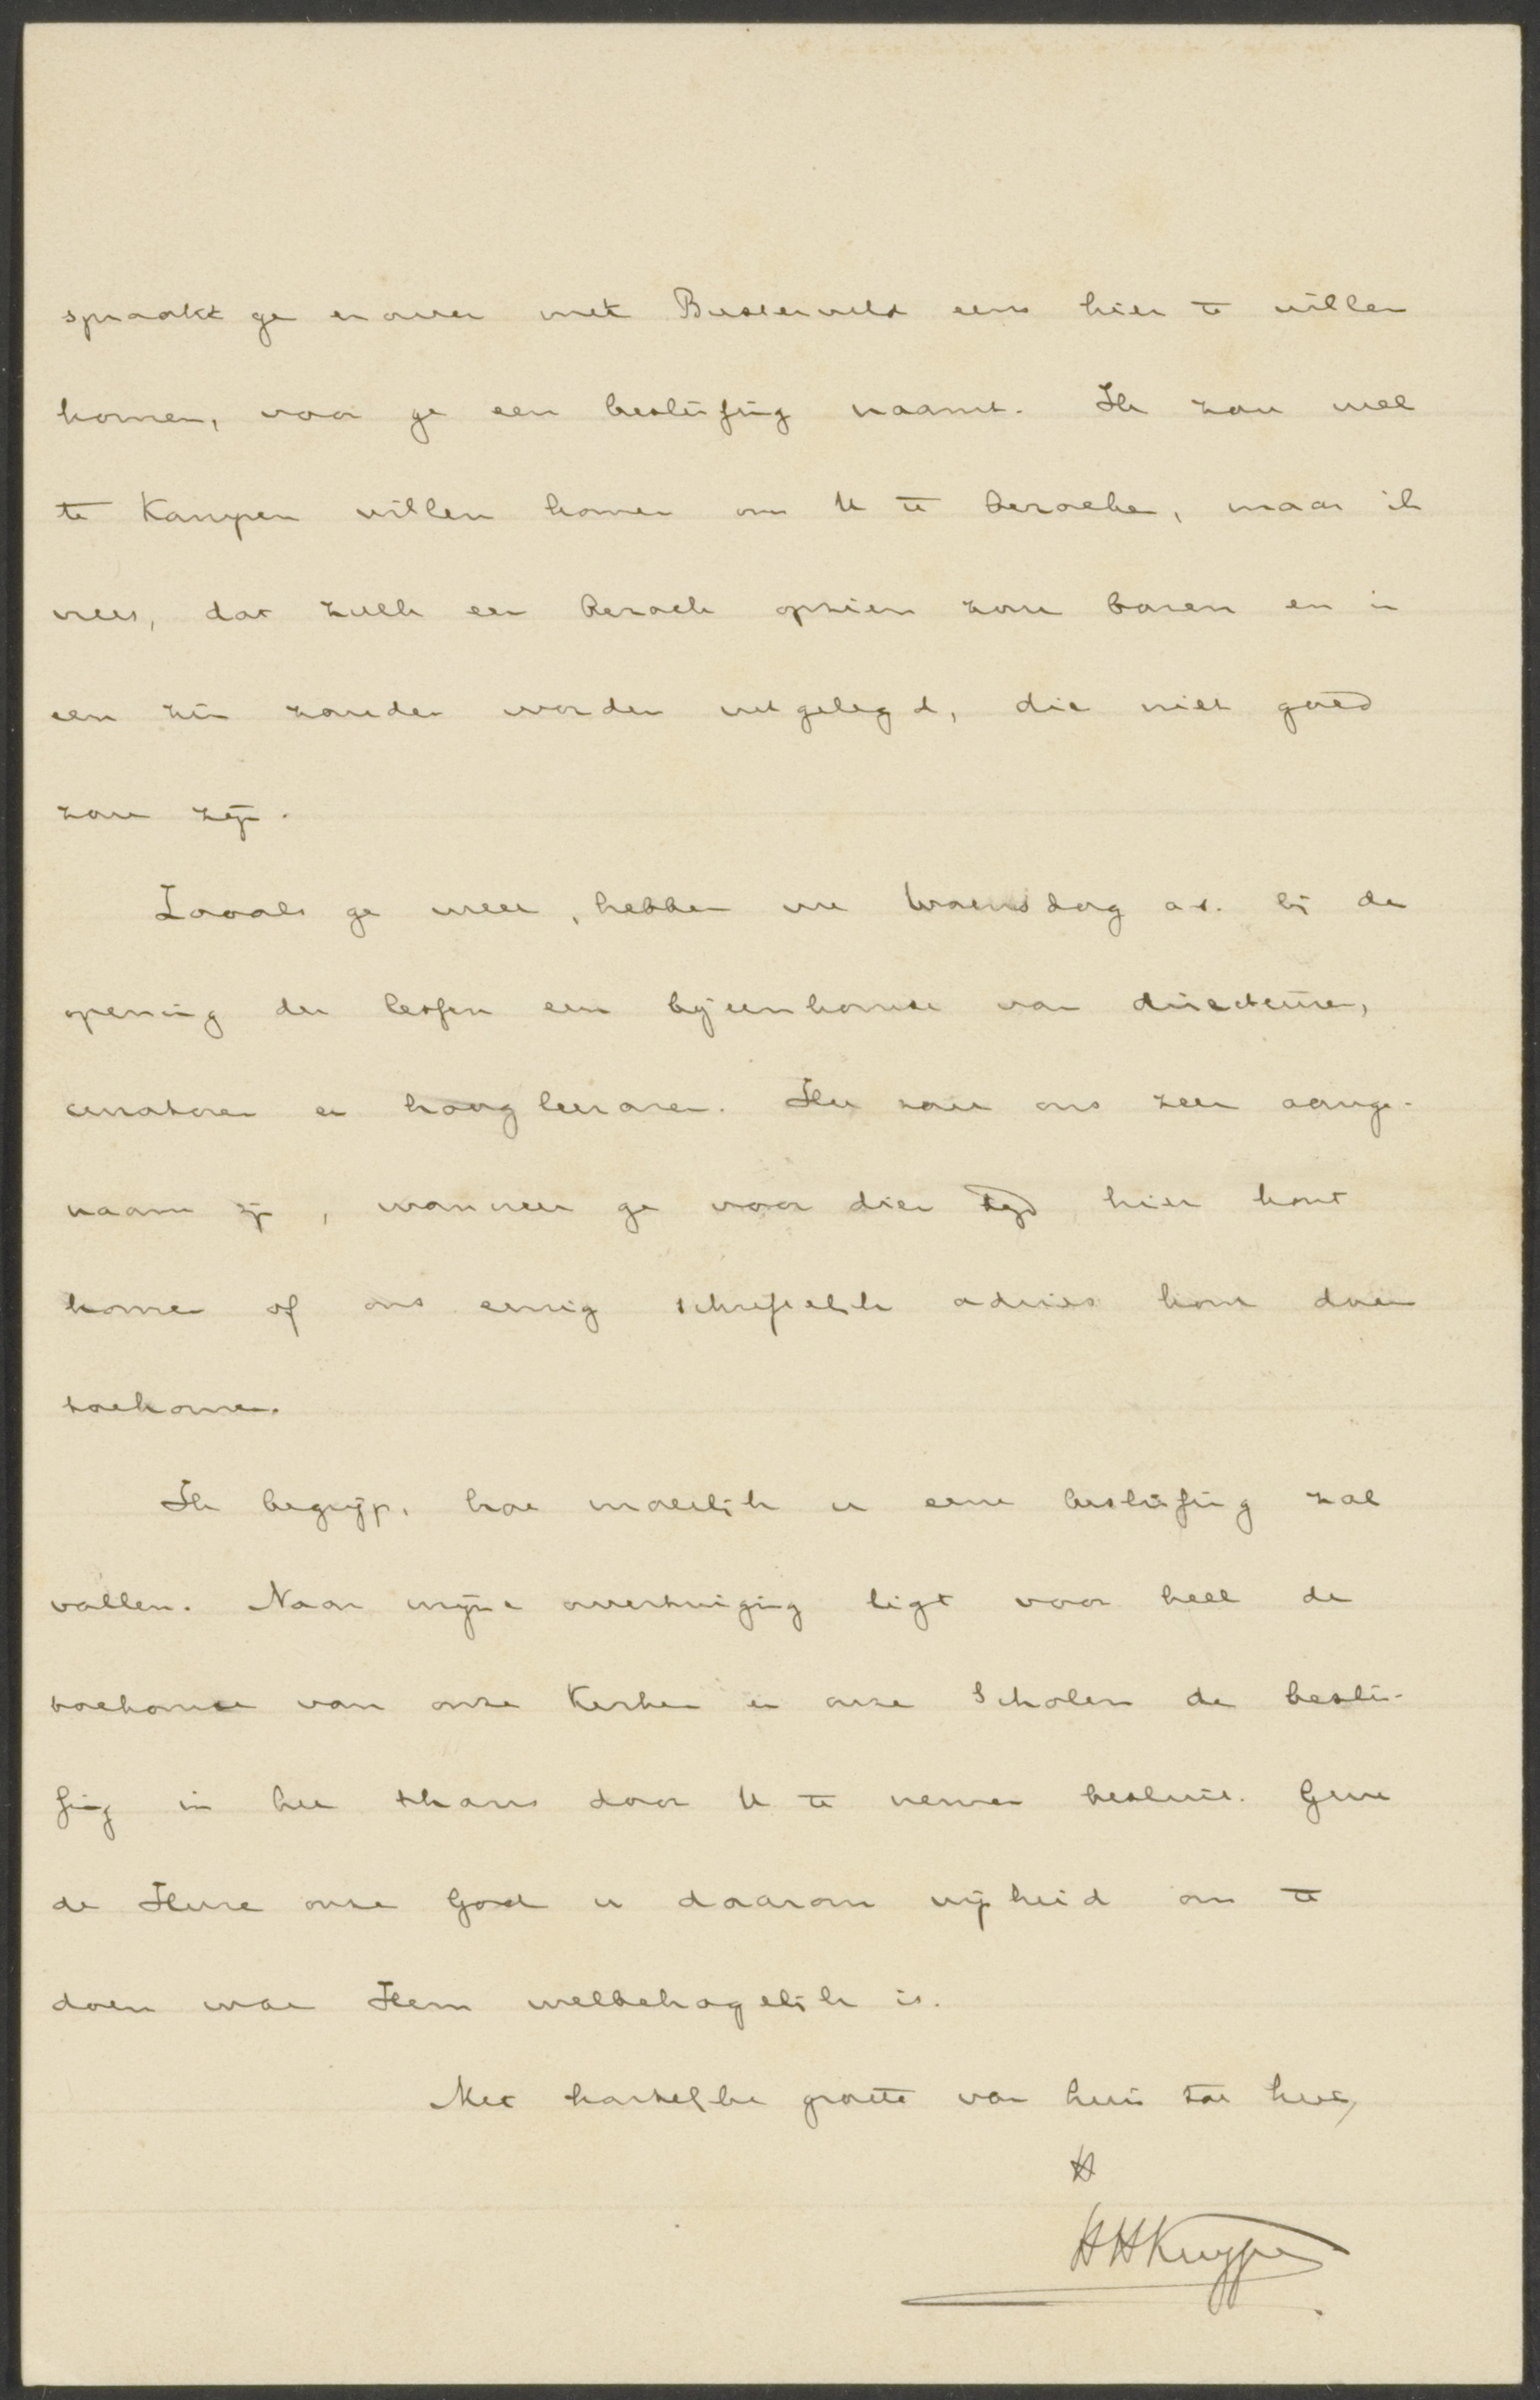 spraakt ge erover met Biesterveld eens hier te willen
komen, voor ge een beslissing naamt. Ik zou wel
te Kampen willen komen om U te bezoeken, maar ik
vrees, dat zulk een bezoek opzien zou baren en in
een zin zouden worden uitgelegd, die niet goed
zou zijn.
Zooals ge weet, hebben we Woensdag a.s. bij de
opening der lessen een bijeenkomst van directeuren,
curatoren en hoogleeraren. Het zou ons zeer aange-
naam zijn, wanneer ge voor dien tijd hier kont
komen of ons eenig schriftelijk advies kont doen
toekomen.
Ik begrijp, hoe moeilijk u eene beslissing zal
vallen. Naar mijne overtuiging ligt voor heel de
toekomst van onze Kerken en onze Scholen de beslis-
sing in het thans door U te nemen besluit. Geve
de Heere onze God u daarom wijsheid om te
doen wat Hem welbehagelijk is.
Met hartelijke groete van huis tot huis,
HHKuyper